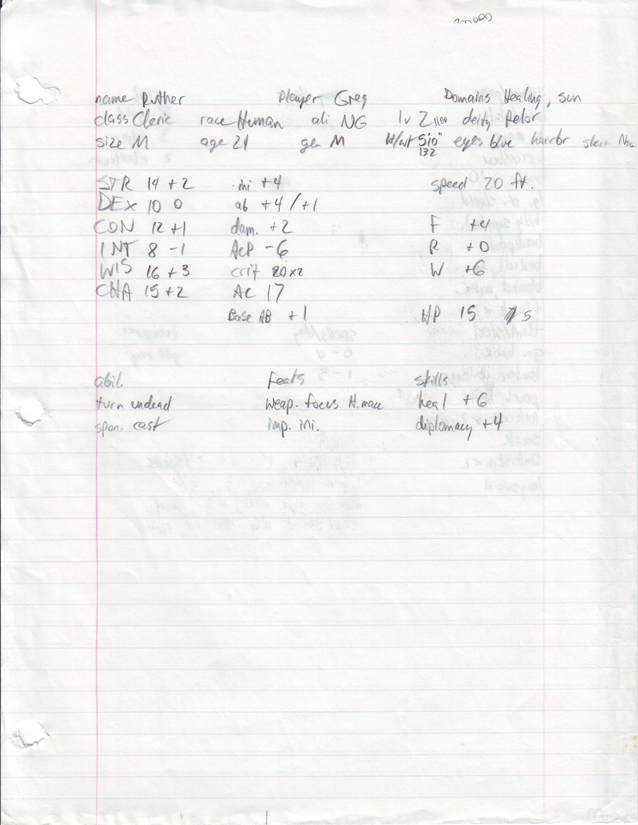 name Ruther Player Greg Domains Healing, sun
class Cleric race Human ali NG lv 2 deity Pelor
size M age 21 gen M ht/wt 5'10" eyes blue hair br skin
132
STR 14 +2 ini +4 speed 20 ft.
DEX 10 0 ab +4/+1
CON 12 +1 dam. +2 F +4
INT 8 -1 ACP -6 R +0
WIS 16 +3 crit 20x2 W +6
CHA 15 +2 AC 17
Base AB +1 HP 15 5
abil. Feats skills
turn undead weap. focus H.mace heal +6
spon. cast imp. ini. diplomacy +4